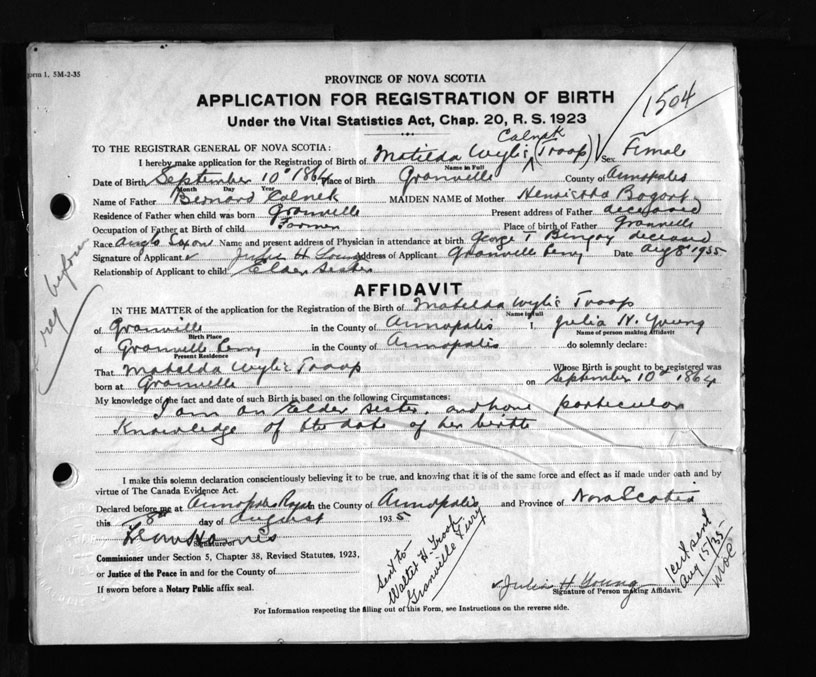 orm 1. 5M-2-35
PROVINCE OF NOVA SCOTIA
1504
APPLICATION FOR REGISTRATION OF BIRTH
Under the Vital Statistics Act, Chap. 20, R. S. 1923
Calnek
TO THE REGISTRAR GENERAL OF NOVA SCOTIA:
I hereby make application for the Registration of Birth of Matilda Wylie (Troop) Sex Female
Name in Full
Date of Birth September 10th 1864 Place of Birth Granville County of Annapolis
Month Day Year
Name of Father Calnek MAIDEN NAME of Mother Henrietta Bogart
Residence of Father when child was born Granville Present address of Father deceased
Occupation of Father at Birth of child Farmer Place of birth of Father Granville
Race Anglo Saxon Name and present address of Physician in attendance at birth George T deceased
Signature of Applicant Julia H Young Address of Applicant Granville Ferry Date Aug 8th 1935
Relationship of Applicant to child Elder Sister
reg before
AFFIDAVIT
IN THE MATTER of the application for the Registration of the Birth of Matilda Wylie Troop
Name in Full
of Granville in the County of Annapolis I, Julia H. Young
Birth Place Name of person making Affidavit
of Granville Ferry in the County of Annapolis do solemnly declare:
Present Residence
That Matilda Wylie Troop Whose Birth is sought to be registered was
born at Granville on September 10th 1864
My knowledge of the fact and date of such Birth is based on the following Circumstances:
I am an Elder sister, and have particular
Knowledge of the date of her birth
I make this solemn declaration conscientiously believing it to be true, and knowing that it is of the same force and effect as if made under oath and by
virtue of The Canada Evidence Act.
Declared before me at Annapolis Royal in the County of Annapolis and Province of Nova Scotia
this 8th day of August 1935
Signature of
Commissioner under Section 5, Chapter 38, Revised Statutes, 1923,
or Justice of the Peace in and for the County of
If sworn before a Notary Public affix seal.
Sent to
Walter H. Troop
Granville Ferry
Julia H Young
Signature of Person making Affidavit.
Cert sent
Aug 15/35
For Information respecting the filling out of this Form, see Instructions on the reverse side.